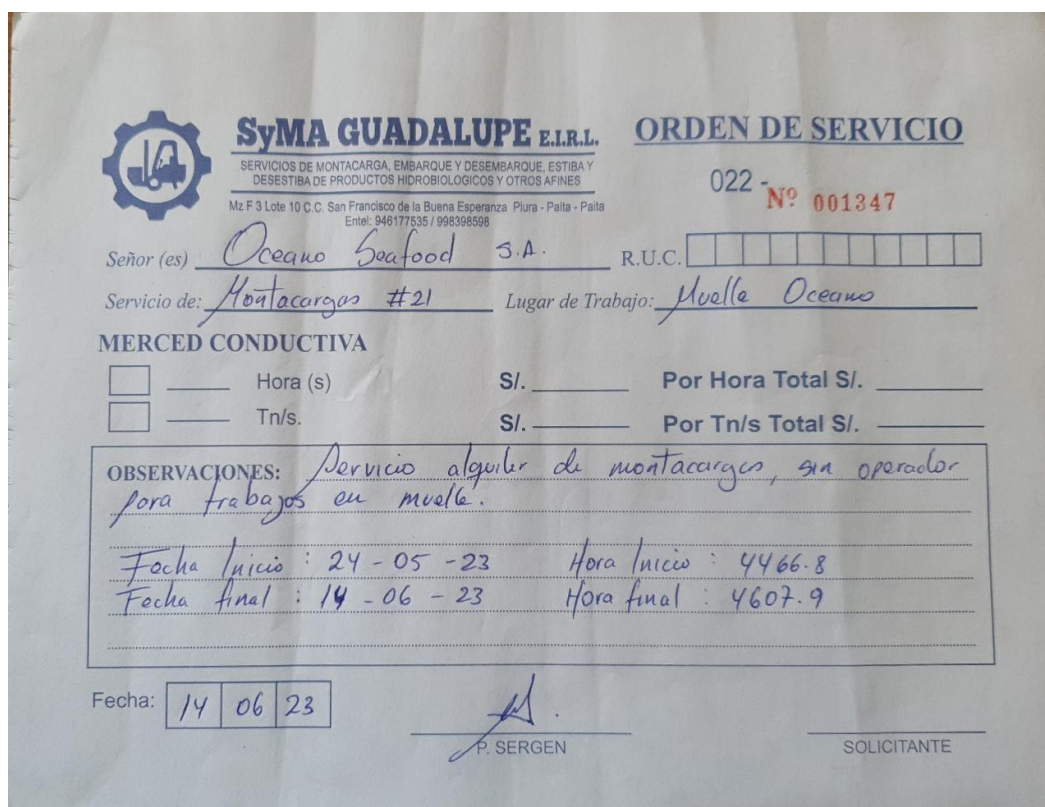 SyMA GUADALUPE E.I.R.L.
SERVICIOS DE MONTACARGA, EMBARQUE Y DESEMBARQUE, ESTIBA Y
DESESTIBA DE PRODUCTOS HIDROBIOLOGICOS Y OTROS AFINES
Mz F 3 Lote 10 C.C. San Francisco de la Buena Esperanza Piura - Paita - Paita
Entel: 946177535 / 998398598
ORDEN DE SERVICIO
022 - Nº 001347
Señor (es) Oceano Seafood S.A. R.U.C.
Servicio de: Montacargas #21 Lugar de Trabajo: Muelle Oceano
MERCED CONDUCTIVA
Hora (s) S/. Por Hora Total S/.
Tn/s. S/. Por Tn/s Total S/.
OBSERVACIONES: Servicio alquiler de montacargas, sin operador
para trabajos en muelle.
Fecha Inicio : 24 - 05 - 23 Hora Inicio : 4466.8
Fecha final : 14 - 06 - 23 Hora final : 4607.9
Fecha: 14 06 23
P. SERGEN
SOLICITANTE